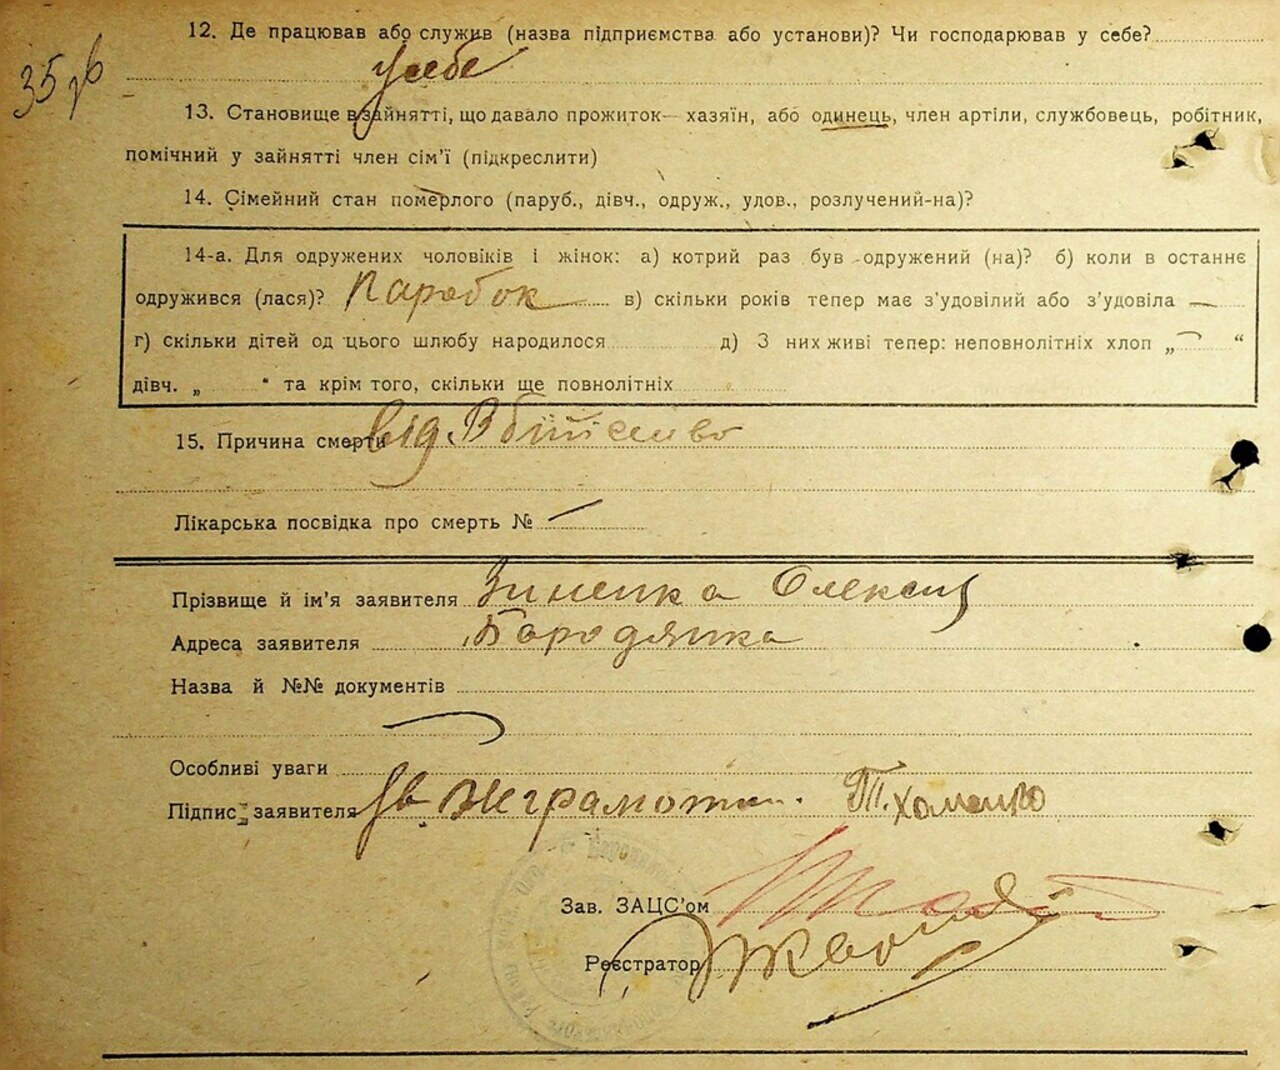 35 зв
12. Де працював або служив (назва підприємства або установи)? Чи господарював у себе?
У себе
13. Становище в зайнятті, що давало прожиток— хазяїн, або одинець, член артіли, службовець, робітник,
помічний у зайнятті член сім'ї (підкреслити)
14. Сімейний стан померлого (паруб., дівч., одруж., удов., розлучений-на)?
14-а. Для одружених чоловіків і жінок: а) котрий раз був одружений (на)? б) коли в останнє
одружився (лася)? Паробок в) скільки років тепер має з'удовілий або з'удовіла —
г) скільки дітей од цього шлюбу народилося д) З них живі тепер: неповнолітніх хлоп „ — “
дівч. „ “ та крім того, скільки ще повнолітніх
15. Причина смерти від Вбійство
Лікарська посвідка про смерть № —
Прізвище й ім'я заявителя Зиненка Олексій
Адреса заявителя Бородянка
Назва й №№ документів
Особливі уваги
Підпис заявителя За Неграмотн. Т. Хоменко
Зав. ЗАЦС'ом
Реєстратор